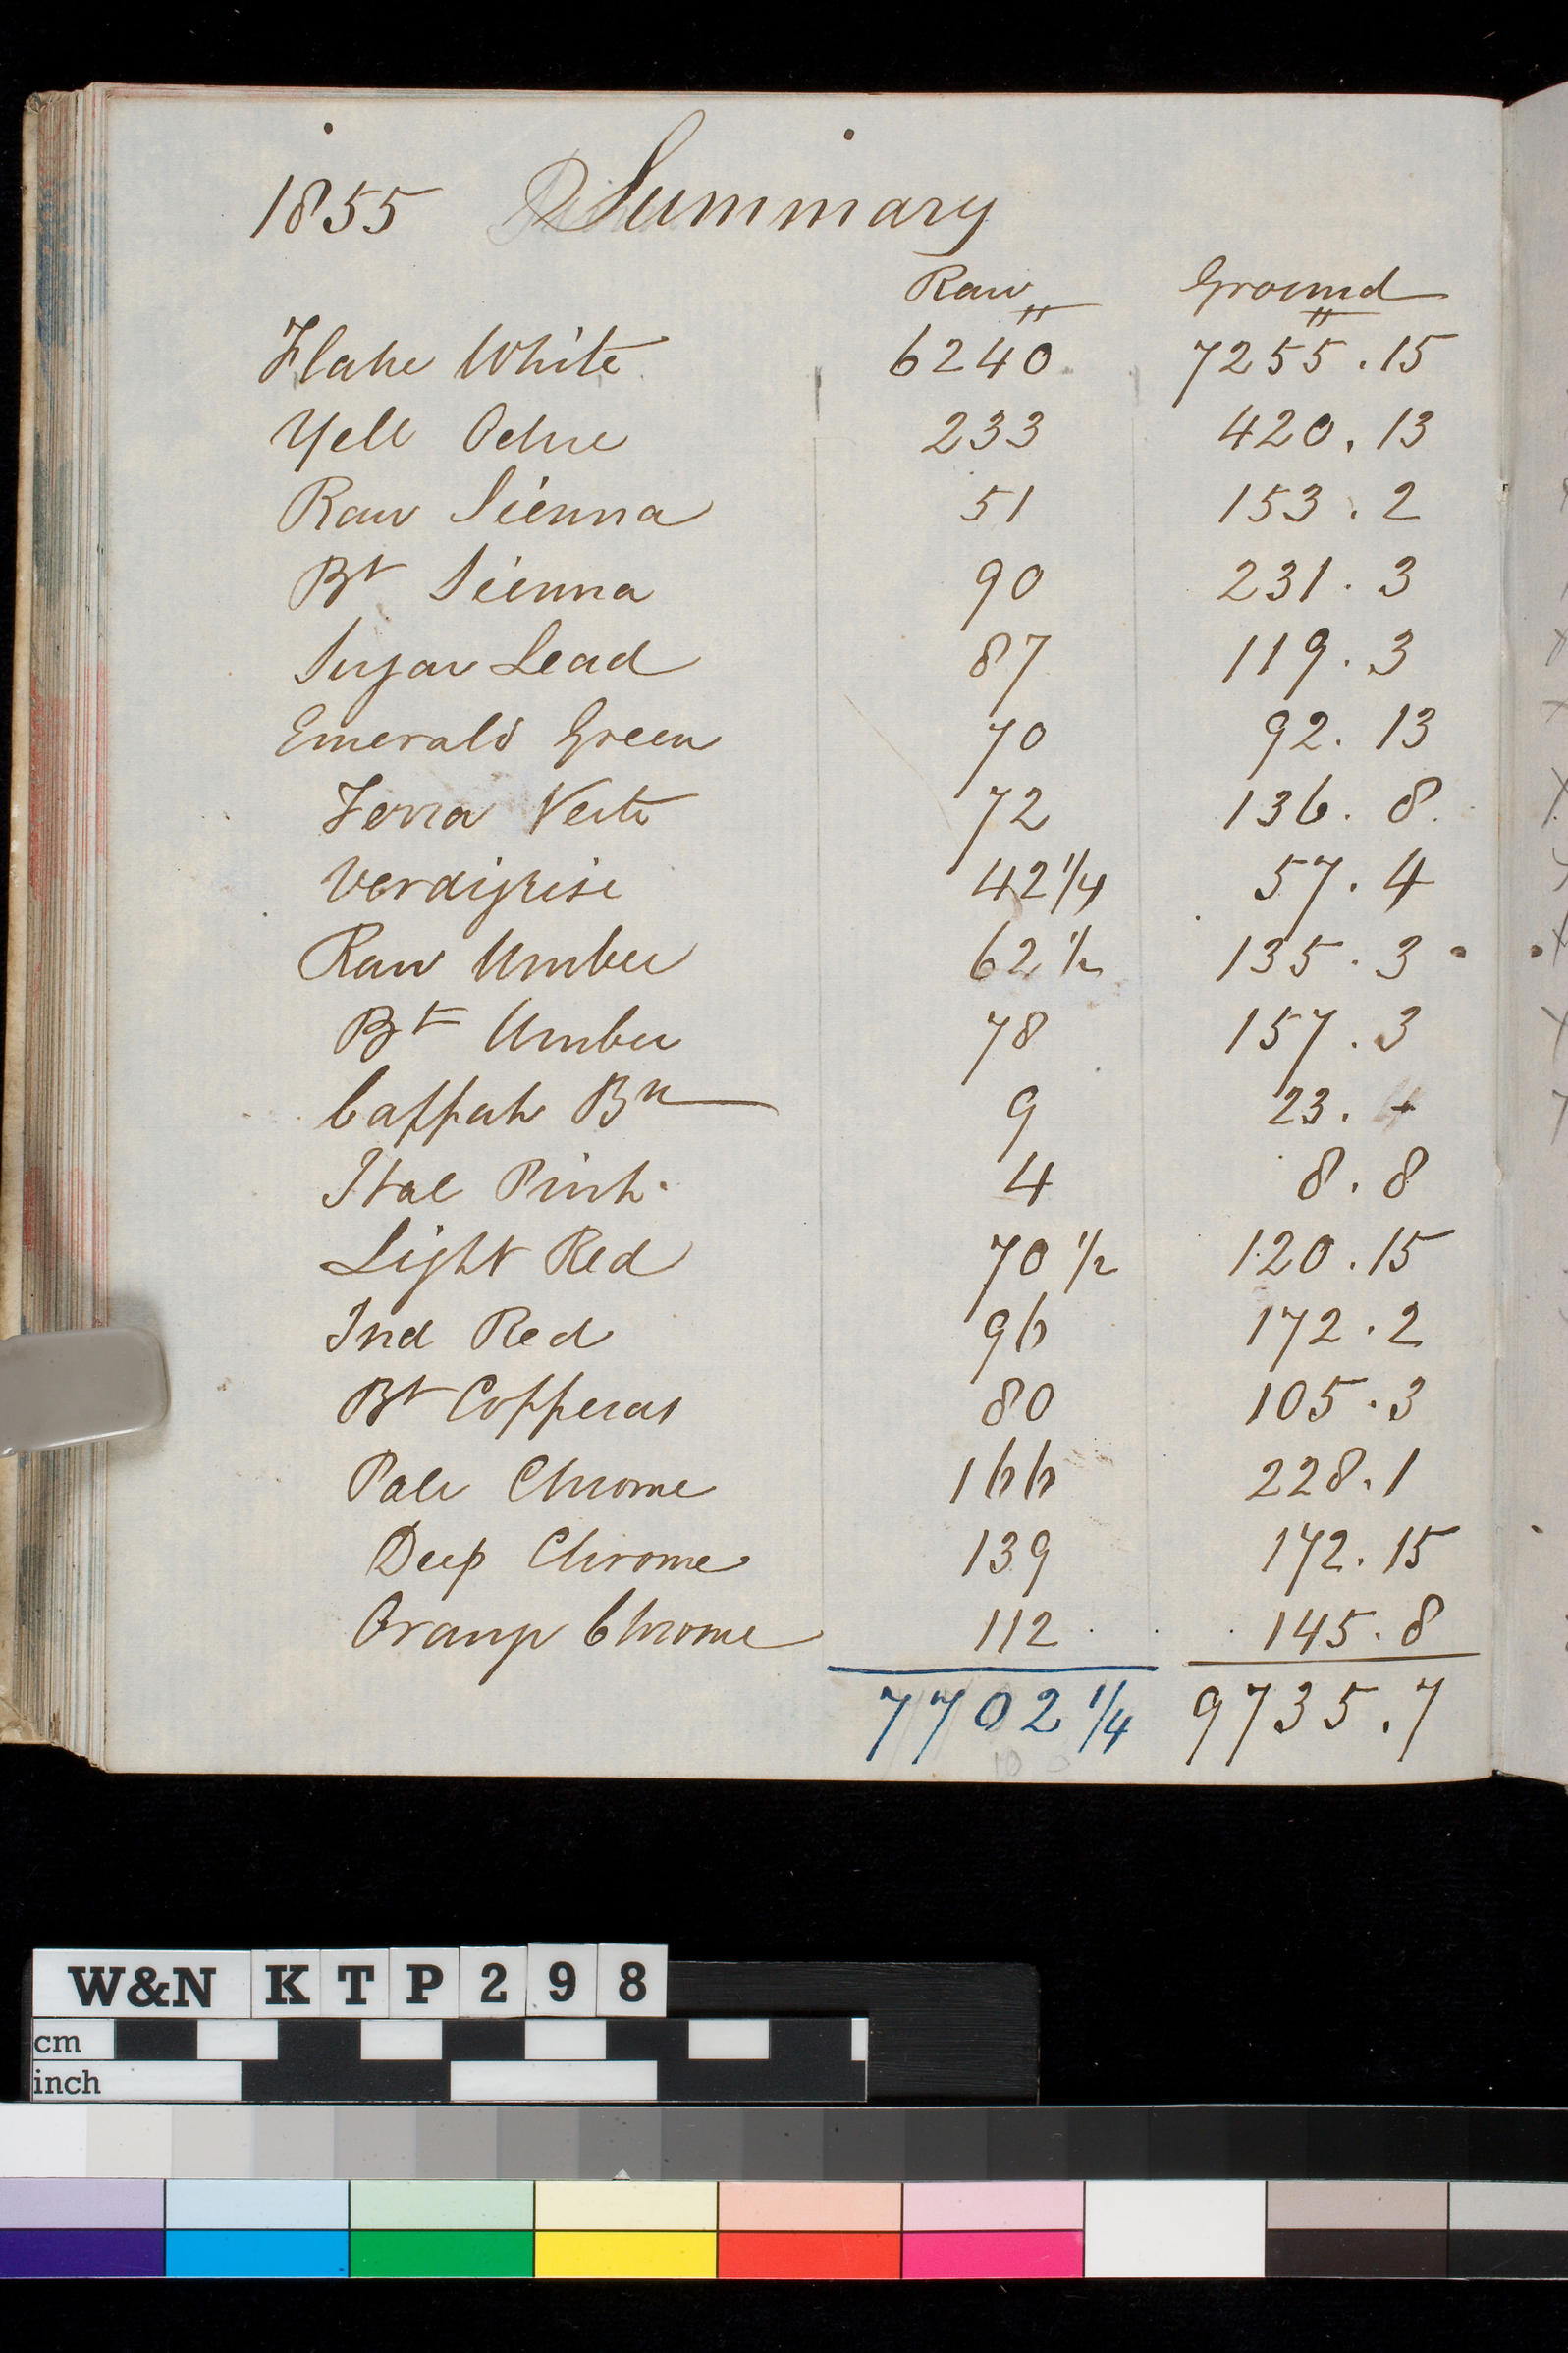 1855 Summary
Raw Ground
Flake White 6240 7255.15
Yell Ochre 233 420.13
Raw Sienna 51 153.2
Bt Sienna 90 231.3
Sugar Lead 87 119.3
Emerald Green 70 92.13
Terra Verte 72 136.8
Verdigrise 42 1/4 57.4
Raw Umber 62 1/2 135.3
Bt Umber 78 157.3
Cappah Bn 9 23.
Ital Pink 4 8.8
Light Red 70 1/2 120.15
Ind Red 96 172.2
Bt Copperas 80 105.3
Pale Chrome 166 228.1
Deep Chrome 139 172.15
Orange Chrome 112 145.8
7702 1/4 9735.7
W&N KTP298
cm
inch